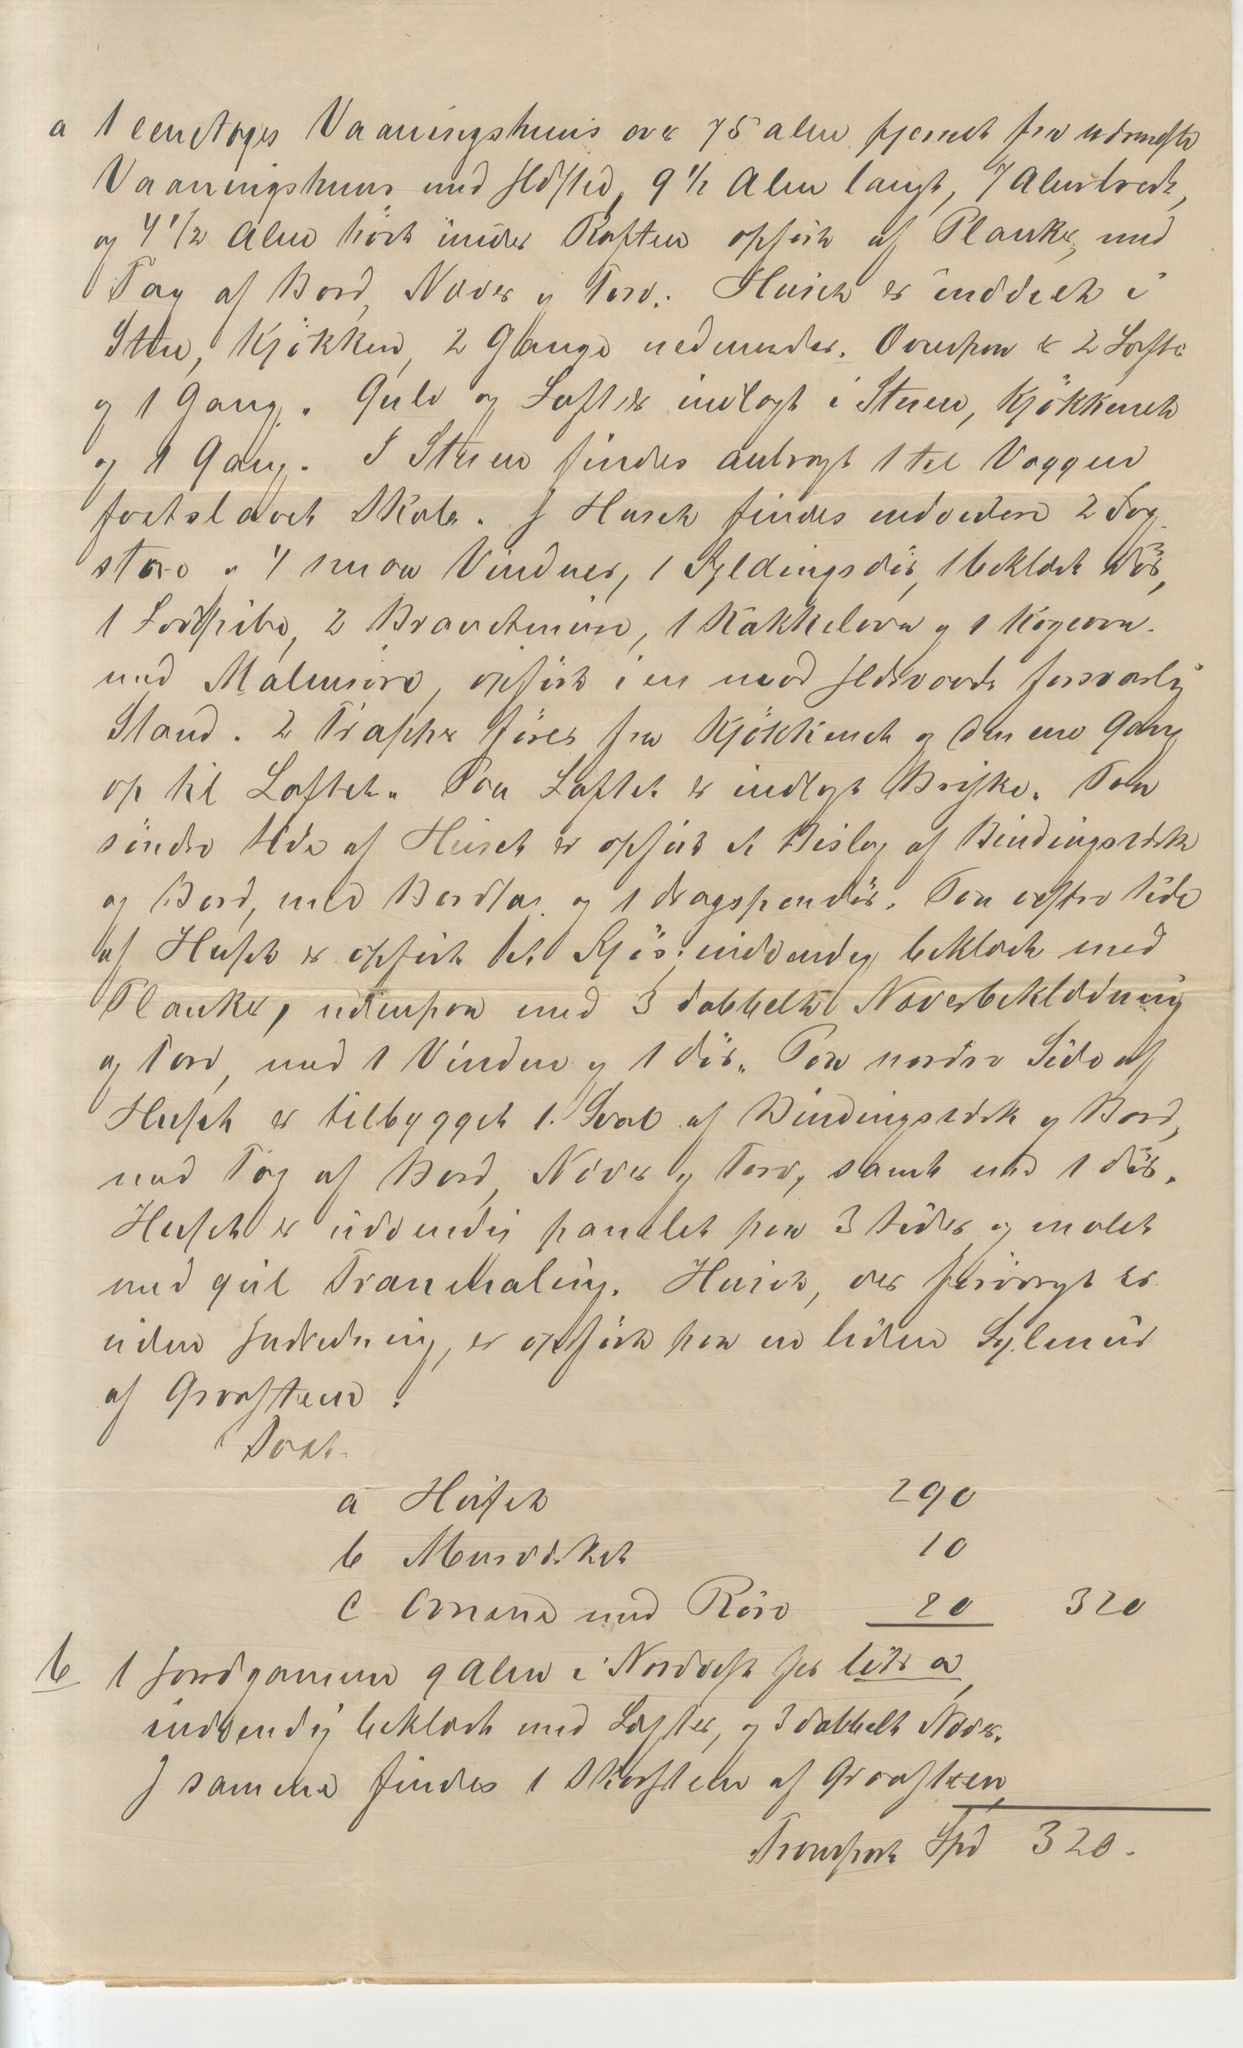 a 1 eenetages Vaaningshuus over 75 alen fjernet fra nærmeste
Vaaningshuus med Ildsted, 9 1/2 Alen langt, 7 Alen bredt,
og 4 1/2 Alen höit under Raften opført af Planker, med
Tag af Bord, Næver og Torv. Huset er inddelt i
Stue, Kjökken, 2 Gange nedenunder. Ovenpaa er 2 Lofte
og 1 Gang. Gulv og Loft er indlagt i Stuen, Kjökkenet
og 1 Gang. I Stuen findes anbragt 1 til Væggen
fastslaaet Skab. I Huset findes endvidere 2 Fag
store og 4 smaa Vinduer, 1 Fyldingsdör, 1 beklædt Dör,
1 Jordpibe, 2 Brandmure, 1 Kakkelovn og 1 Kogeovn
med Malmrör, opfört i en mod Ildsvaade forsvarlig
Stand. 2 Trapper förer fra Kjökkenet og den ene Gang
op til Loftet. Paa Loftet er indlagt Briske. Paa
söndre Side af Huset er opfört et Bislag af Bindingsværk
og Bord, med Bordtag og 1 dragspendör. Paa östre Side
af Huset er opfört et Fjös, indvendig beklædt med
Planker, udenpaa med 3 dobbelt Næverbeklædning
og Torv, med 1 Vindue og 1 dör. Paa nordre Side af
Huset er tilbygget 1 Sval af Bindingsværk og Bord,
med Tag af Bord, Næver og Torv, samt med 1 dör.
Huset er udvendig panelet paa 3 Sider og malet
med guul Tranmaling. Huset, der forövrigt er
uden Indredning, er opfört paa en liden Sylmuur
af Graasteen.
Taxt.
a Huset 290
b Muurværket 10
c Ovnene med Röro 20 320
b 1 Jordgamme 9 Alen i Nordvest for litr a,
indvendig beklædt med Lægter, og 3 dobbelt Næver.
I samme findes 1 Skorsteen af Graasteen
Transport Spd 320.